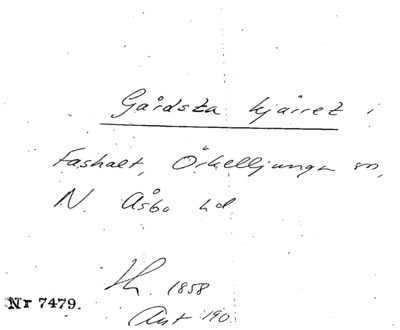 Gårdsta kjärret i
Fashalt, Örkelljunga sn,
N. Åsbo hd
1858
Nr 7479.
Ant 190